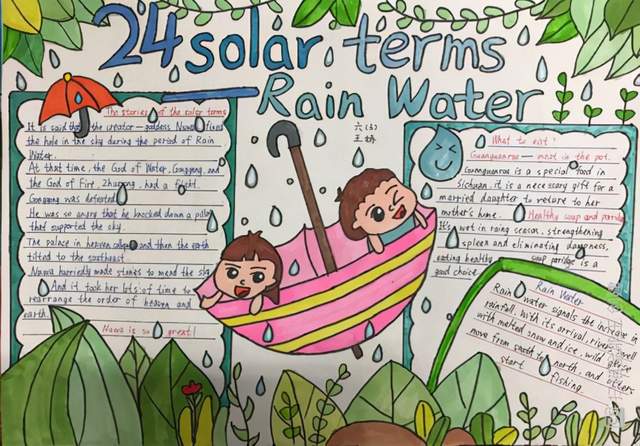 24 solar terms
Rain Water
六(5)
The stories of the solar terms
It is said that the creator-goddess Nuwa fixed
the hole in the sky during the period of Rain
Water.
At that time, the God of Water, Gonggong, and
the God of Fire, Zhurong, had a fight.
Gonggong was defeated
He was so angry that he knocked down a pillar
that supported the sky.
The palace in heaven collapsed and then the earth
tilted to the southeast
Nuwa hurriedly made stones to mend the sky
And it took her lots of time to
rearrange the order of heaven and
earth.
Nuwa is so great!
What to eat?
Guanguanrou — meat in the pot.
Guanguanrou is a special food in
sichuan. it is a necessary gift for a
married daughter to return to her
mother's home. Healthy soup and porridge
It's wet in rainy season, strengthening
spleen and eliminating dampness,
eating healthy soup poridge is a
good choice
Rain Water
Rain water signals the increase in
rainfall. With its arrival, rivers swell
with melted snow and ice, wild geese
move from south to north, and otters
start fishing